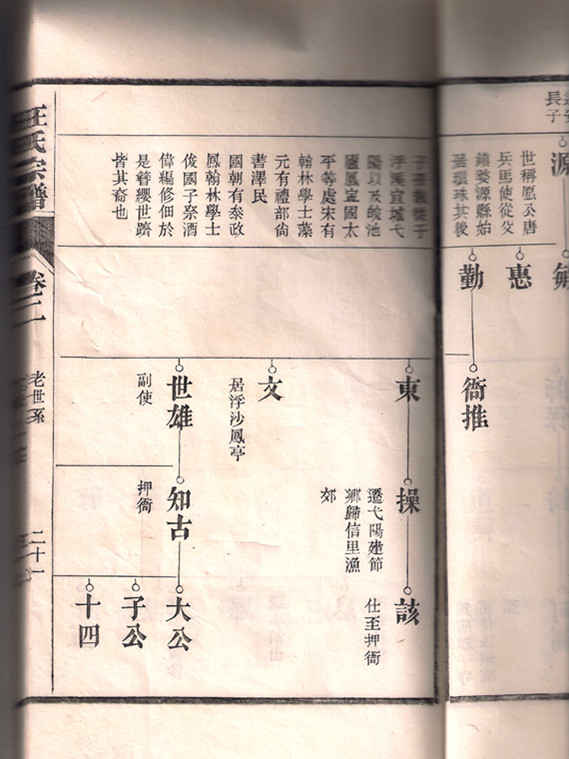 長子
源
世稱愿公唐
兵馬使從父
鎮婺源縣始
居環珠其後
敏
惠
勤
衙推
浮溪宜城弋
陽以及皖池
廬鳳宣國太
平等處宋有
翰林學士藻
元有禮部尙
書澤民
國朝有叅政
鳳翰林學士
俊國子祭酒
偉編修佃於
是簪纓世躋
皆其裔也
東
操
遷弋陽建節
鄉歸信里漁
郊
該
仕至押衙
文
居浮沙鳳亭
世雄
副使
知古
押衙
大公
子公
十四
汪氏宗譜
卷二
老世系
二十一